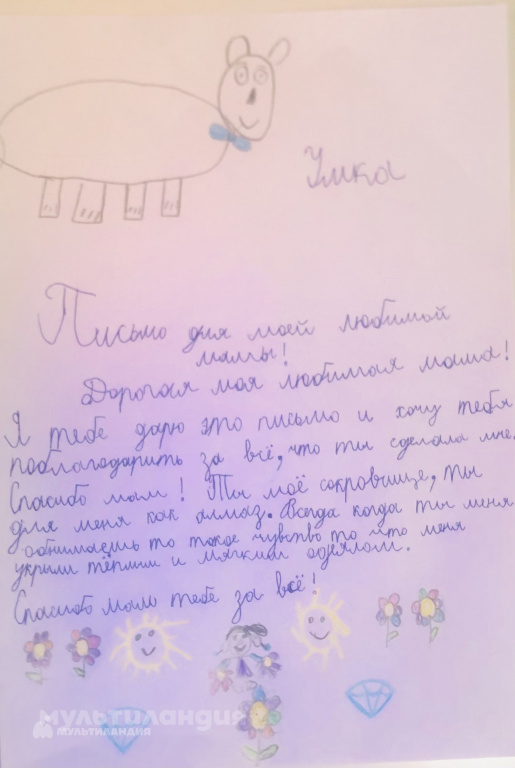 Умка
Письмо для моей любимой
мамы!
Дорогая моя любимая мама!
Я тебе дарю это письмо и хочу тебя
поблагодарить за всё, что ты сделала мне.
Спасибо мам! Ты моё сокровище, ты
для меня как алмаз. Всегда когда ты меня
обнимаешь то такое чувство то что меня
укрыли тёплым и мягким одеялом.
Спасибо мама тебе за всё!
мультиландия
МУЛЬТИЛАНДИЯ